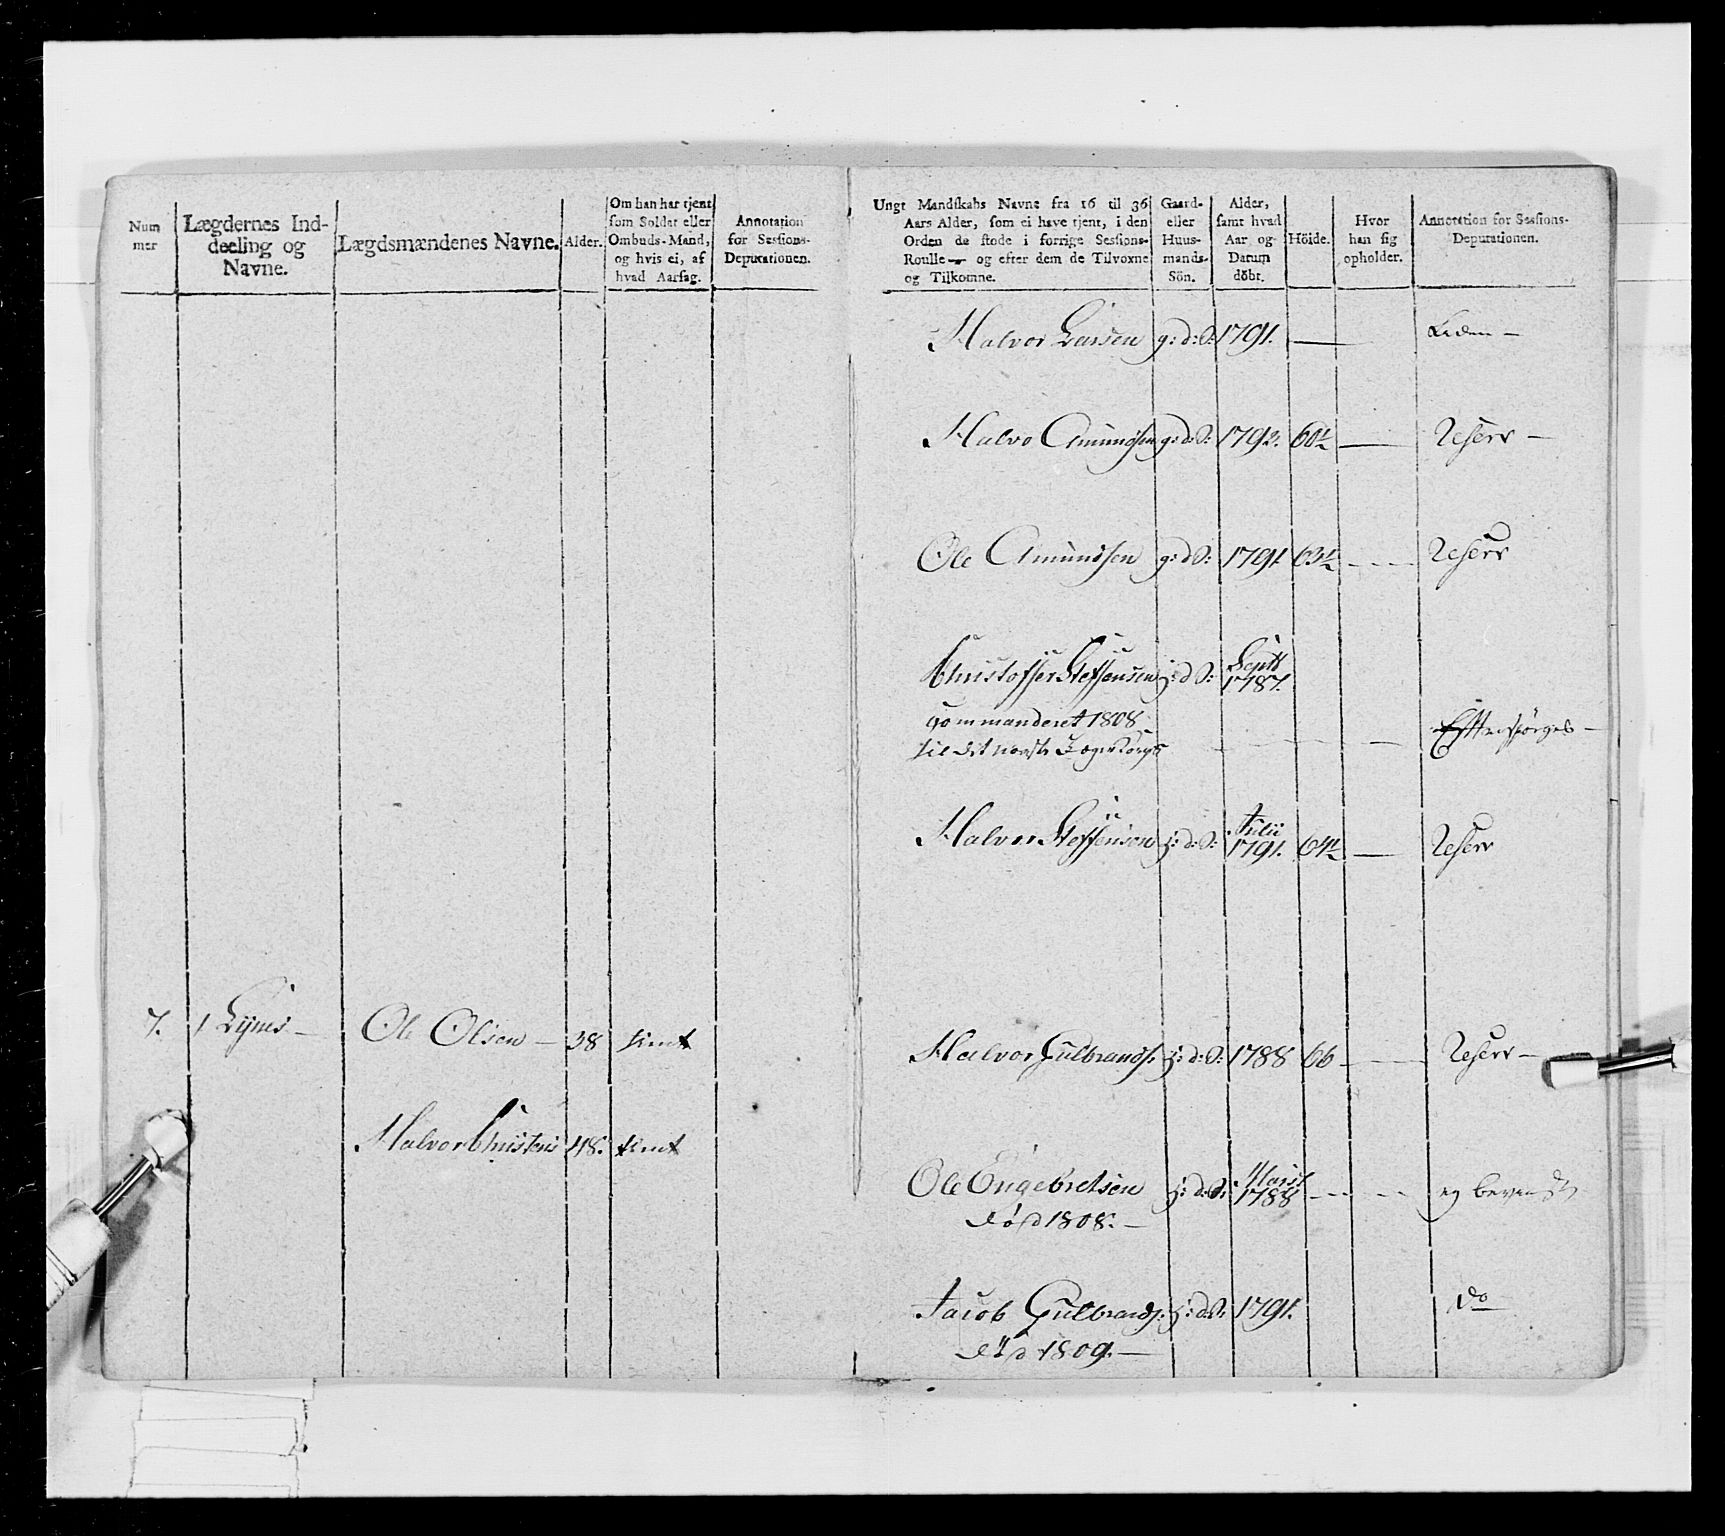 Num
mer
Lægdernes Ind-
deeling og
Navne.
Lægdsmændenes Navne.
Alder.
Om han har tjent
som Soldat eller
Ombuds-Mand,
og hvis ei, af
hvad Aarsag.
Annotation
for Sessions-
Deputationen.
7. 1 Lynes – Ole Olsen – 38 tient
Halvor Christens 48. tient
Ungt Mandskabs Navne fra 16 til 36
Aars Alder, som ei have tjent, i den
Orden de stode i forrige Sessions-
Roulle – og efter dem de Tilvoxne
og Tilkomne.
Gaard-
eller
Huus-
mands-
Sön.
Alder,
samt hvad
Aar og
Datum
döbt.
Höide.
Hvor
han sig
opholder.
Annotation for Sessions-
Deputationen.
Halvor Larsen g: d: S: 1791. — Liden –
Halvo Amundsen g: d: S: 1792. 60½ — Reserv –
Ole Amundsen g: d S: 1791 63½ — Reserv
Christoffer Steffensen j: d S: Septb
1787.
Commanderet 1808
til det norske Jæger Corps — Efterspørges –
Halvor Steffensen j: d: S: Julii
1791. 64½ — Reserv
Halvor Gulbrands. j: d: S: 1788 66 — Reserv –
Ole Engebretsen j: d: S: Marti
1788 — —
død 1808. –
Jacob Gulbrands. j: d: S: 1791. do
død 1809. –